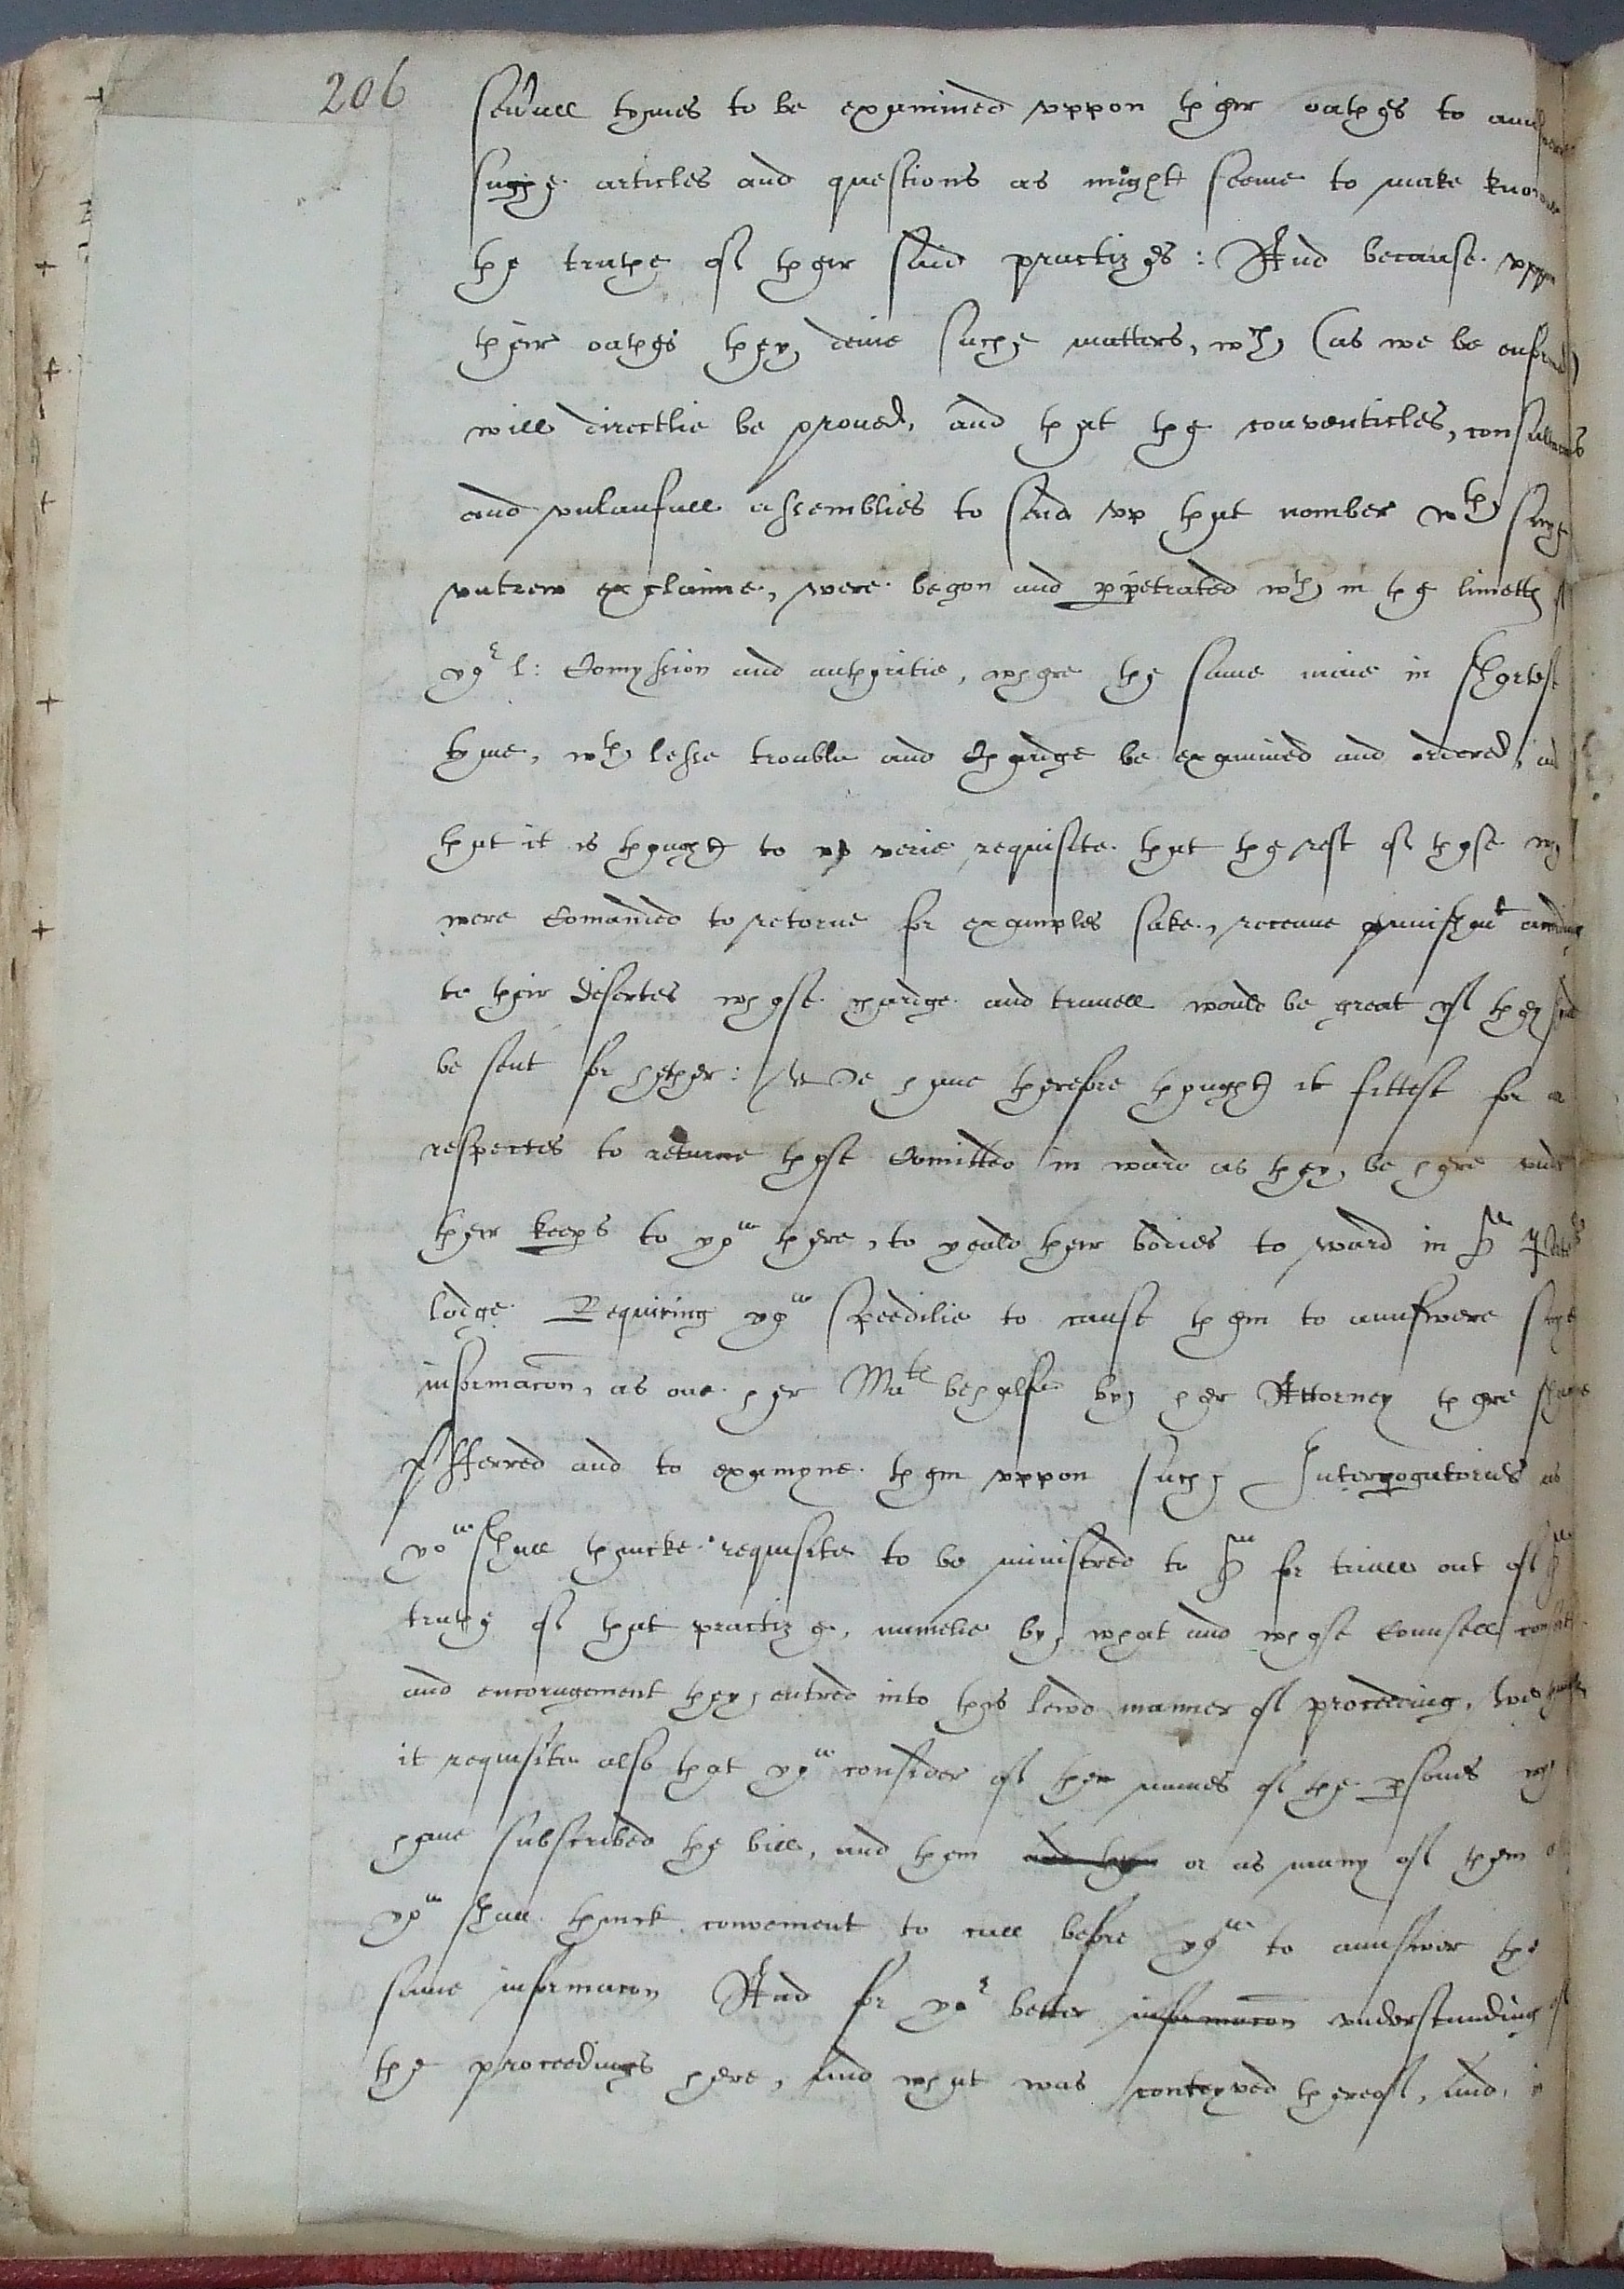 206
seuall tymes to be examined vppon their oathes to aunswere
suche articles and questions as might seeme to make knowne
the truthe of their said practizes : And because vppon
their oathes they denie suche matters, wch (as we be enformed)
will directlie be proued, and that the conventicles, consultacons
and vnlaufull assemblies to send vp that nomber wth suche
vntrew exclaime, were begon and ppetrated wthin the limetts of
yor l: Comyssion and authoritie, where the same maie in shortest
tyme, wth lesse trouble and Chardge be examined and ordered, and
that it is thought to vs verie requisite that the rest of those wch
were Comanded to retorne for examples sake, receaue punishmt according
to their desertes whose chardge and travell would be great yf they shuld
be sent for hether : We haue therefore thought it fittest for
respectes to returne those Comitted in ward as they be here vnder
their keeps to you there, to yeald their bodies to ward in the
lodge Requiring you speedilie to cause them to aunswere suche
informacon, as one her Mats behalfe by her Attorney there shalbe
pfferred and to examyne them vppon suche Interrogatories as
you shall thincke requisite to be ministred to them for triall out of the
truthe of that practize, namelie by what and whose Counsell consent
and encoragement they entred into this lewd manner of proceeding, we thinke
it requisite also that you consider of the names of the psons wch
haue subscribed the bill, and them and them or as many of them as
you shall thinck convenient to call before you to aunswer the
same informacon And for yor better informacon vnderstanding of
the proceedings here, and what was conteyved thereof, and